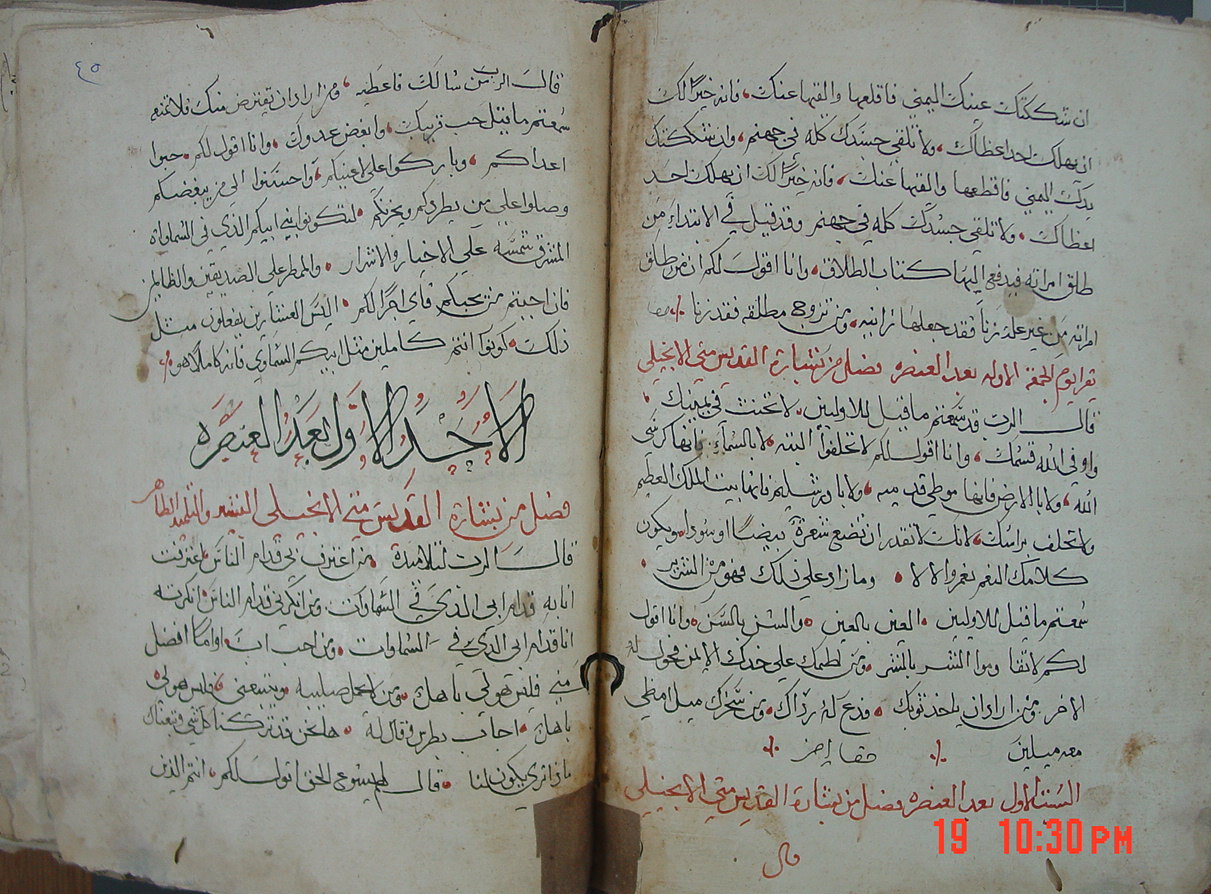 ان شككتك عينك اليمني فاقلعها والقيها عنك، فانه خيرًا لك
ان يهلك احد اعظاك، ولا تلقي جسدك كله في جهنم، وان شككتك
يدك اليمني فاقطعها والقيها عنك، فانه خيرًا لك ان يهلك احد
اعظاك، ولا تلقي جسدك كله في جهنم وقد قيل في الابتداء من
طلق امراته فيدفع اليها كتاب الطلاق، وانا اقول لكم ان من طلق
امراته من غير علة زنا فقد جعلها زانيه، ومن تزوج مطلقه فقد زنا
تقرا يوم الجمعة الاوله بعد العنصره فصل من بشارة القديس متي الانجيلي
قال الرب قد سمعتم ما قيل للاولين، لا تحنث في يمينك،
واوفي الله قسمك، وانا اقول لكم لا تحلفوا البته، لا بالسماء فانها كرسي
الله، ولا بالارض فانها موطي قدميه، ولا باورشليم فانها بيت الملك العظيم
ولا تحلف براسك، لانك لا تقدر ان تصنع شعرة بيضا او سودا، ويكون
كلامك النعم نعم والا لا، وما زاد علي ذلك فهو من الشرير،
سمعتم ما قيل للاولين، العين بالعين، والسن بالسن، وانا اقول
لكم لا تقاوموا الشر بالشر، ومن لطمك علي خدك الايمن فحول له
الاخر، ومن اراد ان ياخد ثوبك، فدع له رداك، ومن سخرك ميل امظي
معه ميلين
السبت الاول بعد العنصره فصل من بشارة القديس متي الانجيلي
قال
٤٥
قال الرب من سالك فاعطيه، ومن اراد ان يقترض منك فلا تمنعه
سمعتم ما قيل حب قريبك، وابغض عدوك، وانا اقول لكم، حبوا
اعداكم، وباركوا علي لاعنيكم، واحسنوا الي من يبغضكم
وصلوا علي من يطردكم ويحزنكم، لتكونوا بني ابيكم الذي في السماوات
المشرق شمسه علي الاخيار والاشرار، والممطر علي الصديقين والظالمين
فان احببتم من يحبكم فاي اجرًا لكم، اليس العشارين يفعلون مثل
ذلك، كونوا انتم كاملين مثل ابيكم السماوي فانه كاملًا هو
الاحد الاول بعد العنصره
فصل من بشارة القديس متي الانجيلي البشير والتلميد الطاهر
قال الرب لتلاميده من اعترف بي قدام الناس اعترفت
انا به قدام ابي الذي في السماوات، ومن انكرني قدام الناس، انكرته
انا قدام ابي الذي في السماوات، ومن احب اب، او اما افضل
مني فليس هو لي باهل، ومن لا يحمل صليبه ويتبعني، فليس هو لي
باهل، اجاب بطرس وقال له، ها نحن قد تركنا كل شي وتبعناك
ماذا تري يكون لنا، قال لهم يسوع الحق اقول لكم، انتم الذين
19 10:30 PM